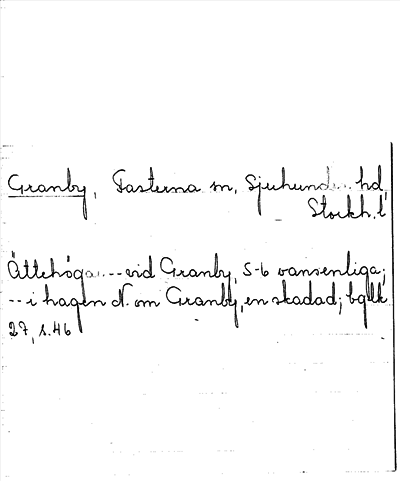 Granby, Fasterna sn, Sjuhund... hd,
Stockh. l
Ättehöga... -- vid Granby, 5-6 vansenliga;
-- i hagen N. om Granby, en skadad; bglk
27, s. 46